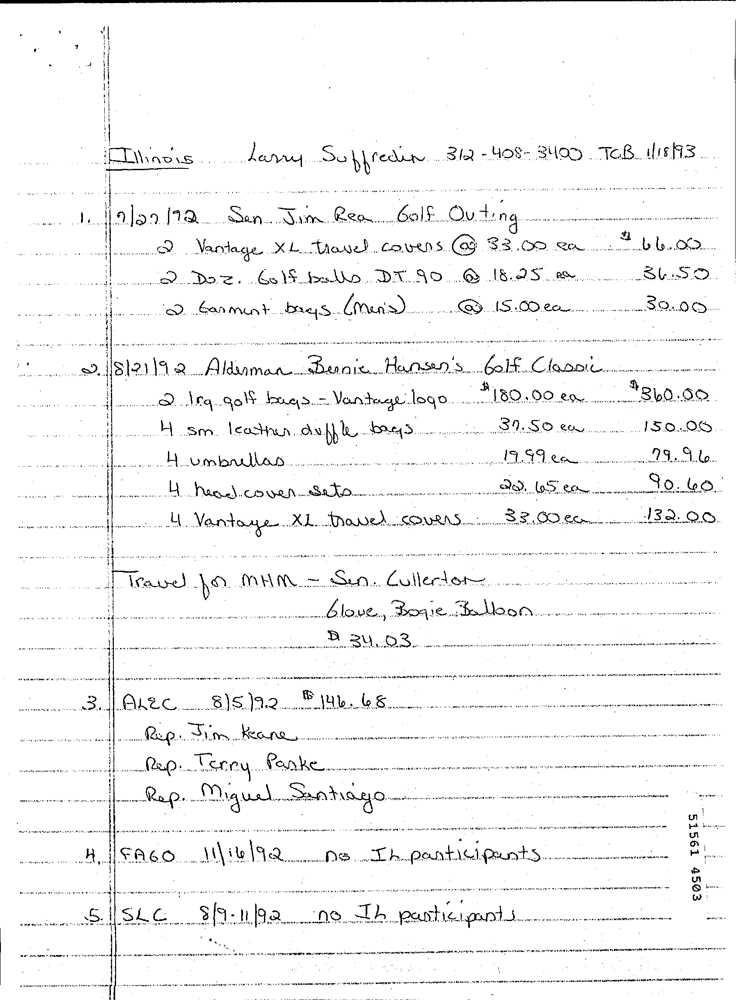 Illinois Larry Suffredin 312-408-3400 TCB 1/18/93
1. 7/27/92 Sen Jim Rea Golf Outing
2 Vantage XL travel covers @ 33.00 ea $ 66.00
2 Doz. Golf balls DT 90 @ 18.25 ea 36.50
2 Garment bags (men's) @ 15.00 ea 30.00
2. 8/21/92 Alderman Bernie Hansen's Golf Classic
2 lrg golf bags - Vantage logo $180.00 ea $360.00
4 sm leather duffle bags 37.50 ea 150.00
4 umbrellas 19.99 ea 79.96
4 head cover sets 22.65 ea 90.60
4 Vantage XL travel covers 33.00 ea 132.00
Travel for MHM - Sen. Cullerton
Glove, Bogie Balloon
$ 34.03
3. ALEC 8/5/92 $146.68
Rep. Jim Keane
Rep. Terry Parke
Rep. Miguel Santiago
4. FAGO 11/16/92 no IL participants
5. SLC 8/9-11/92 no IL participants
51561 4503